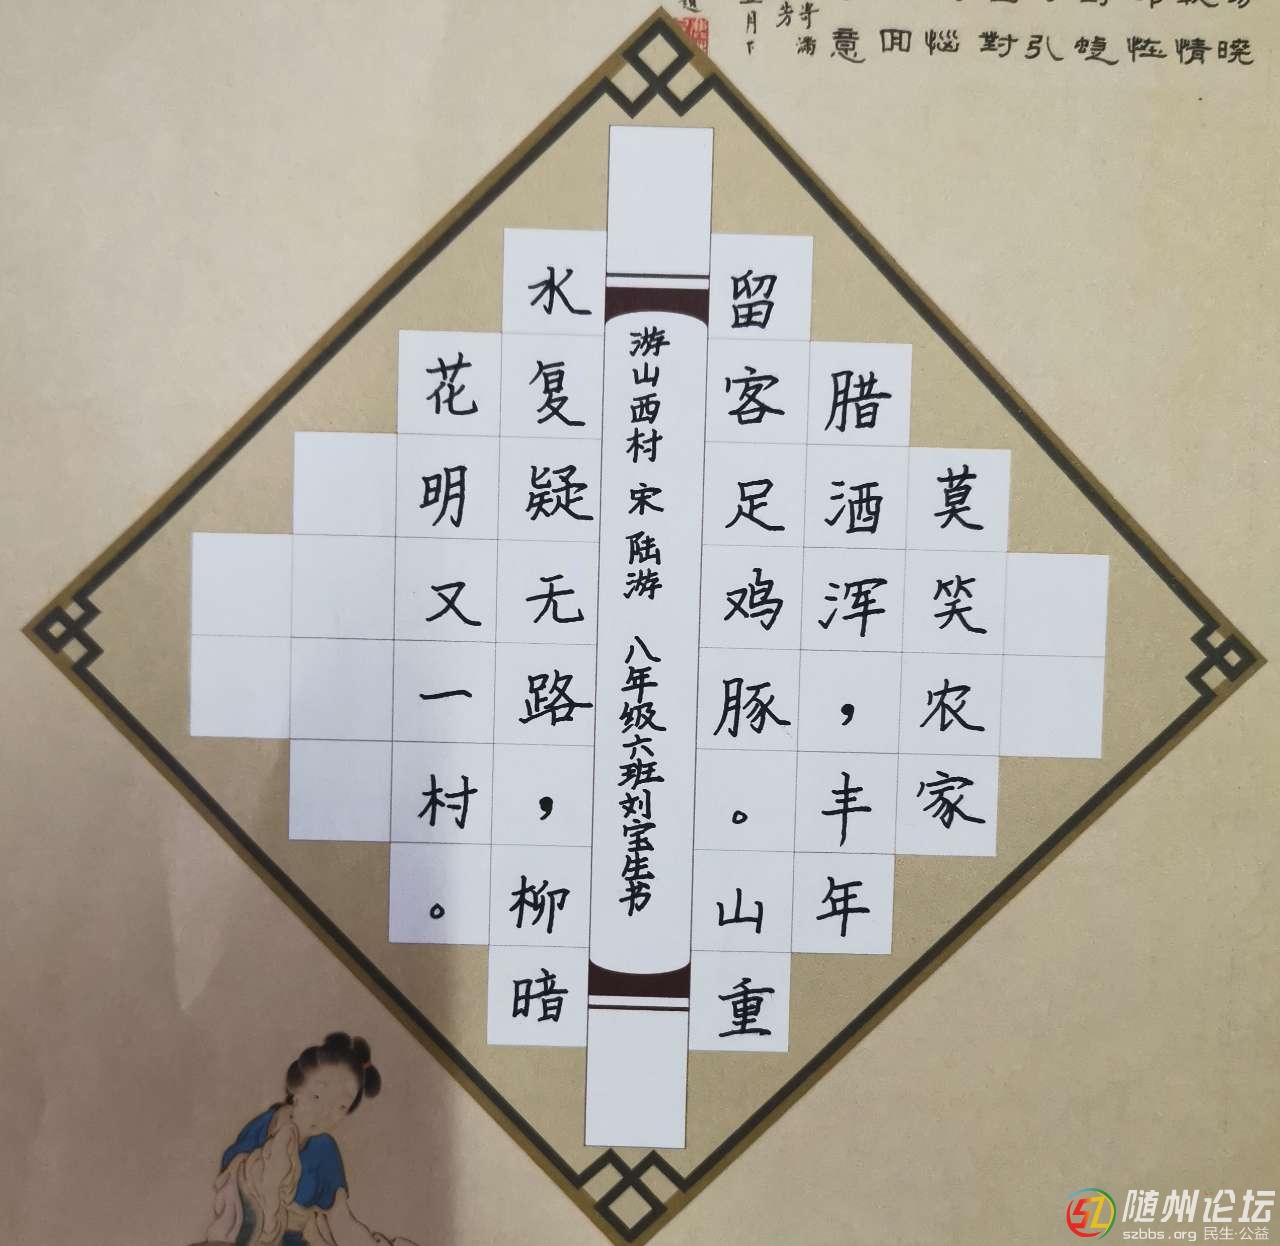 莫笑农家
腊酒浑，丰年
留客足鸡豚。山重
游山西村 宋 陆游 八年级六班刘宝生书
水复疑无路，柳暗
花明又一村。
随州论坛
szbbs.org 民生·公益